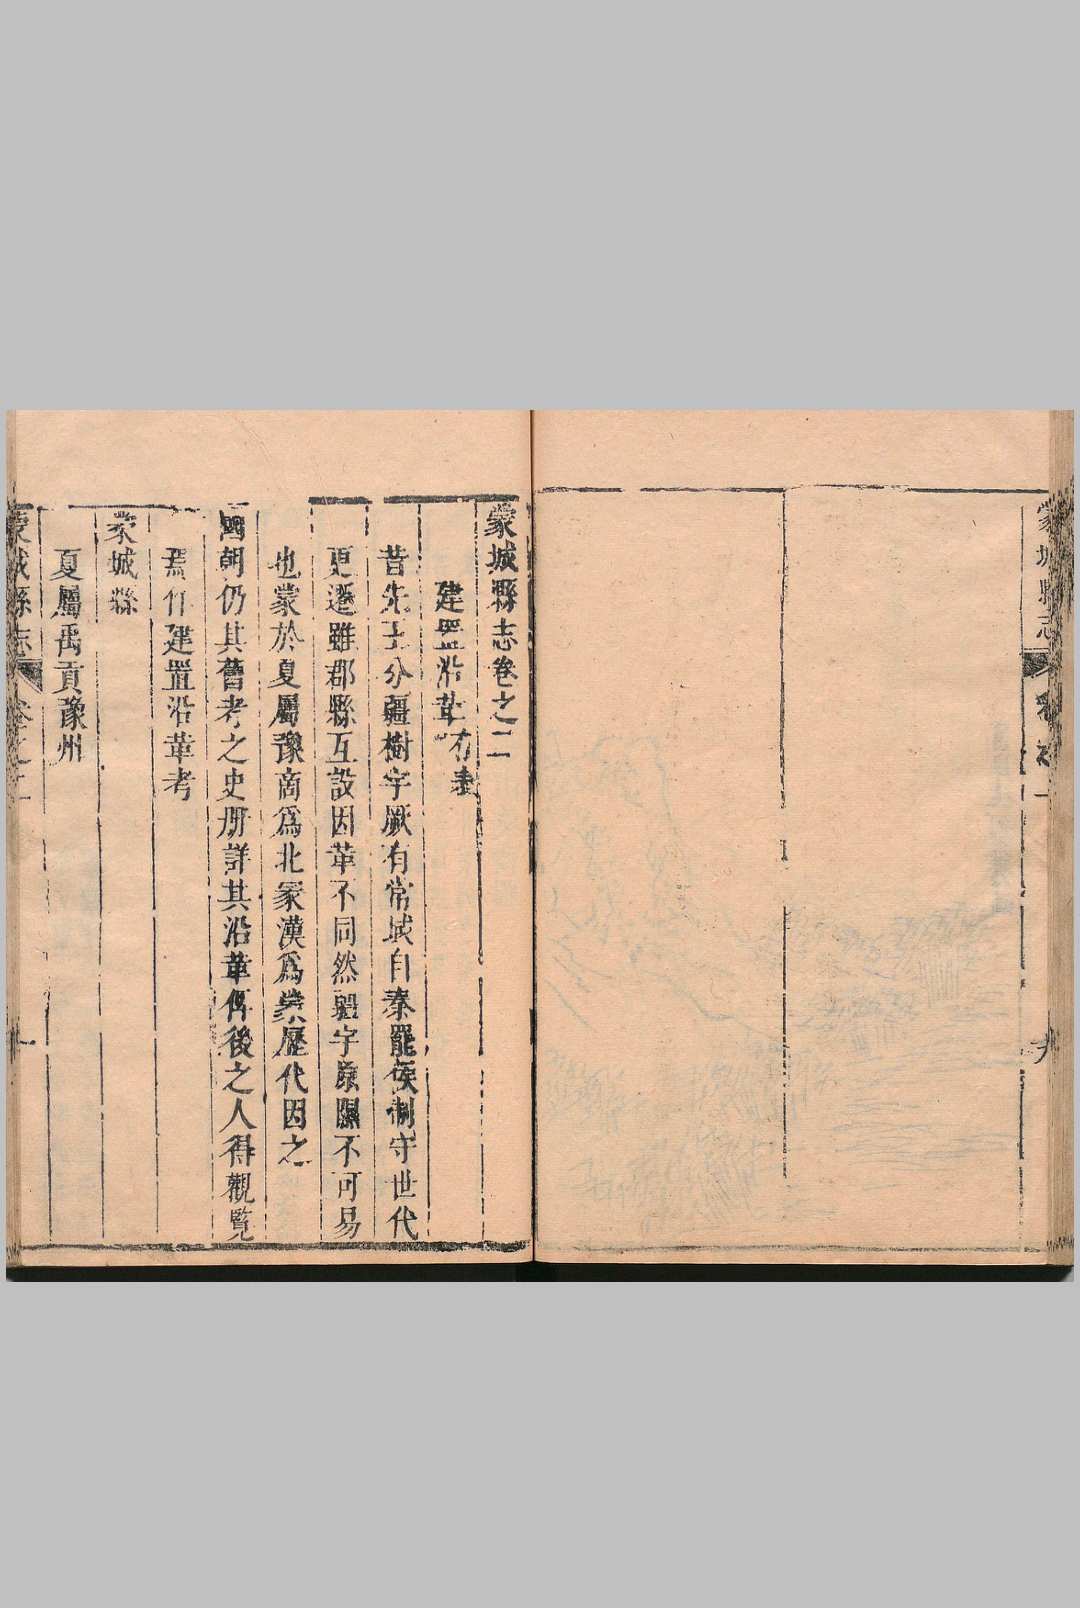 蒙城縣志 卷之一 九
蒙城縣志卷之二
建置沿革 有表
昔先王分疆樹宇厥有常域自秦罷侯制守世代
更遷雖郡縣互設因革不同然疆宇原隰不可易
也蒙於夏屬豫商爲北冢漢爲蒙歷代因之
國朝仍其舊考之史册詳其沿革俾後之人得觀覧
焉作建置沿革考
蒙城縣
夏屬禹貢豫州
蒙城縣志 卷之二 一